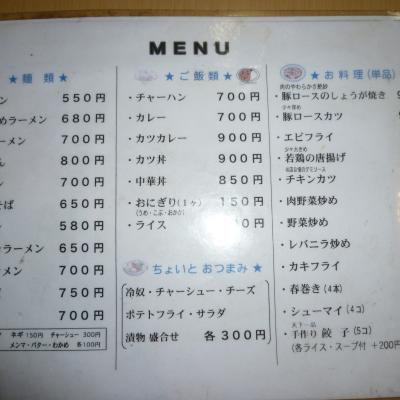 MENU
★ 麺 類 ★
ン 550円
めラーメン 680円
ーメン 700円
ん 800円
ン 700円
そば 650円
ン 580円
ラーメン 650円
ーメン 700円
750円
700円
ネギ 150円 チャーシュー 300円
メンマ・バター・わかめ 各100円
★ ご 飯 類 ★
・チャーハン 700円
・カレー 700円
・カツカレー 900円
・カツ丼 900円
・中華丼 850円
・おにぎり(1ヶ) 150円
(うめ・こぶ・おかか)
・ライス
★ ちょいと おつまみ ★
冷奴・チャーシュー・チーズ
ポテトフライ・サラダ
漬物 盛合せ 各 300円
★ お 料 理 (単品)
肉のやわらかさ絶妙
・豚ロースのしょうが焼き
少々厚め
・豚ロースカツ
・エビフライ
少々大きめ
・若鶏の唐揚げ
・チキンカツ
・肉野菜炒め
・野菜炒め
・レバニラ炒め
・カキフライ
・春巻き (4本)
・シューマイ (4コ)
天下一品
・手作り 餃 子 (5コ)
(各ライス・スープ付 +200円